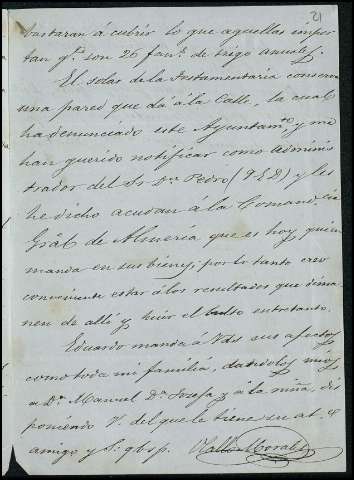 21
bastaran á cubrir lo que aquellas impor
tan q.e son 26 fan.s de trigo anuales.
El solar de la Testamentaria conserva
una pared que dá á la Calle, la cual
ha denunciado este Ayuntam.to, y me
han querido notificar como Adminis
trador del Sr Dn Pedro (q E D) y les
he dicho acudan á la Comand.cia
Gral de Almeria que es hoy quien
manda en sus bienes, por lo tanto creo
conveniente estar á los resultados que dima
nen de allí y huir el bulto entretanto.
Eduardo manda á Vds sus afectos
como toda mi familia, dandolos mios
a Dn Manuel Da Josefa y á la niña, dis
poniendo V. del que le tiene su at.
amigo y S. q b s p.
Morales